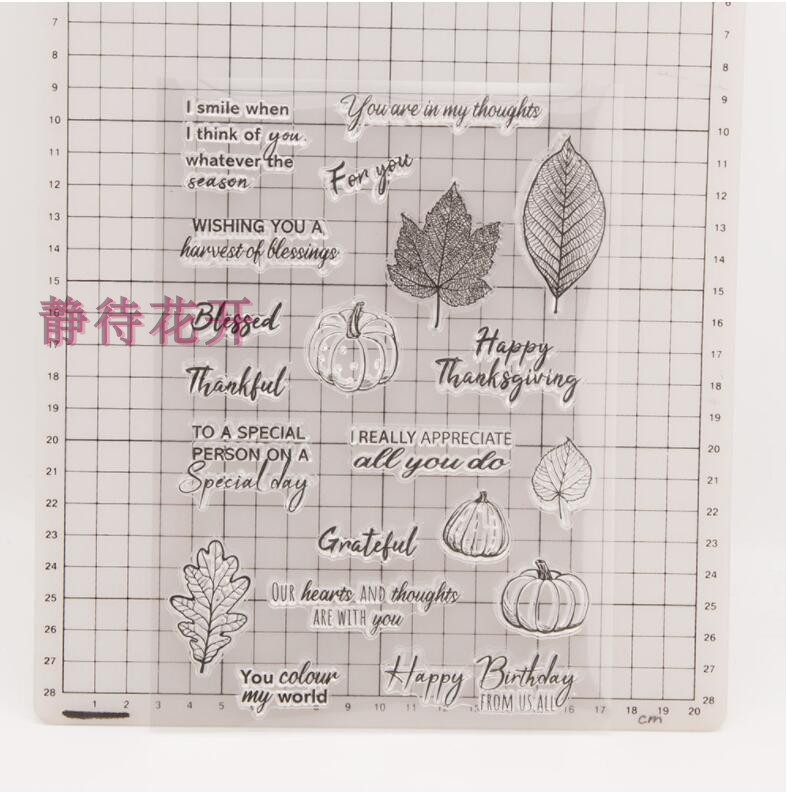 I smile when
I think of you.
whatever the
season
You are in my thoughts
For you
WISHING YOU A
harvest of blessings
静待花开
Blessed
Happy
Thanksgiving
Thankful
TO A SPECIAL
PERSON ON A
Special day
I REALLY APPRECIATE
all you do
Grateful
OUR hearts AND thoughts
ARE WITH you
You colour
my world
Happy Birthday
FROM US ALL
7
8
9
10
11
12
13
14
15
18
19
20
21
22
23
24
25
26
27
28
8
9
10
11
12
13
14
15
16
17
18
19
20
21
22
23
24
25
26
27
28
1 2 3 4 5 8 9 10 11 12 13 16 17 18 19 20
cm